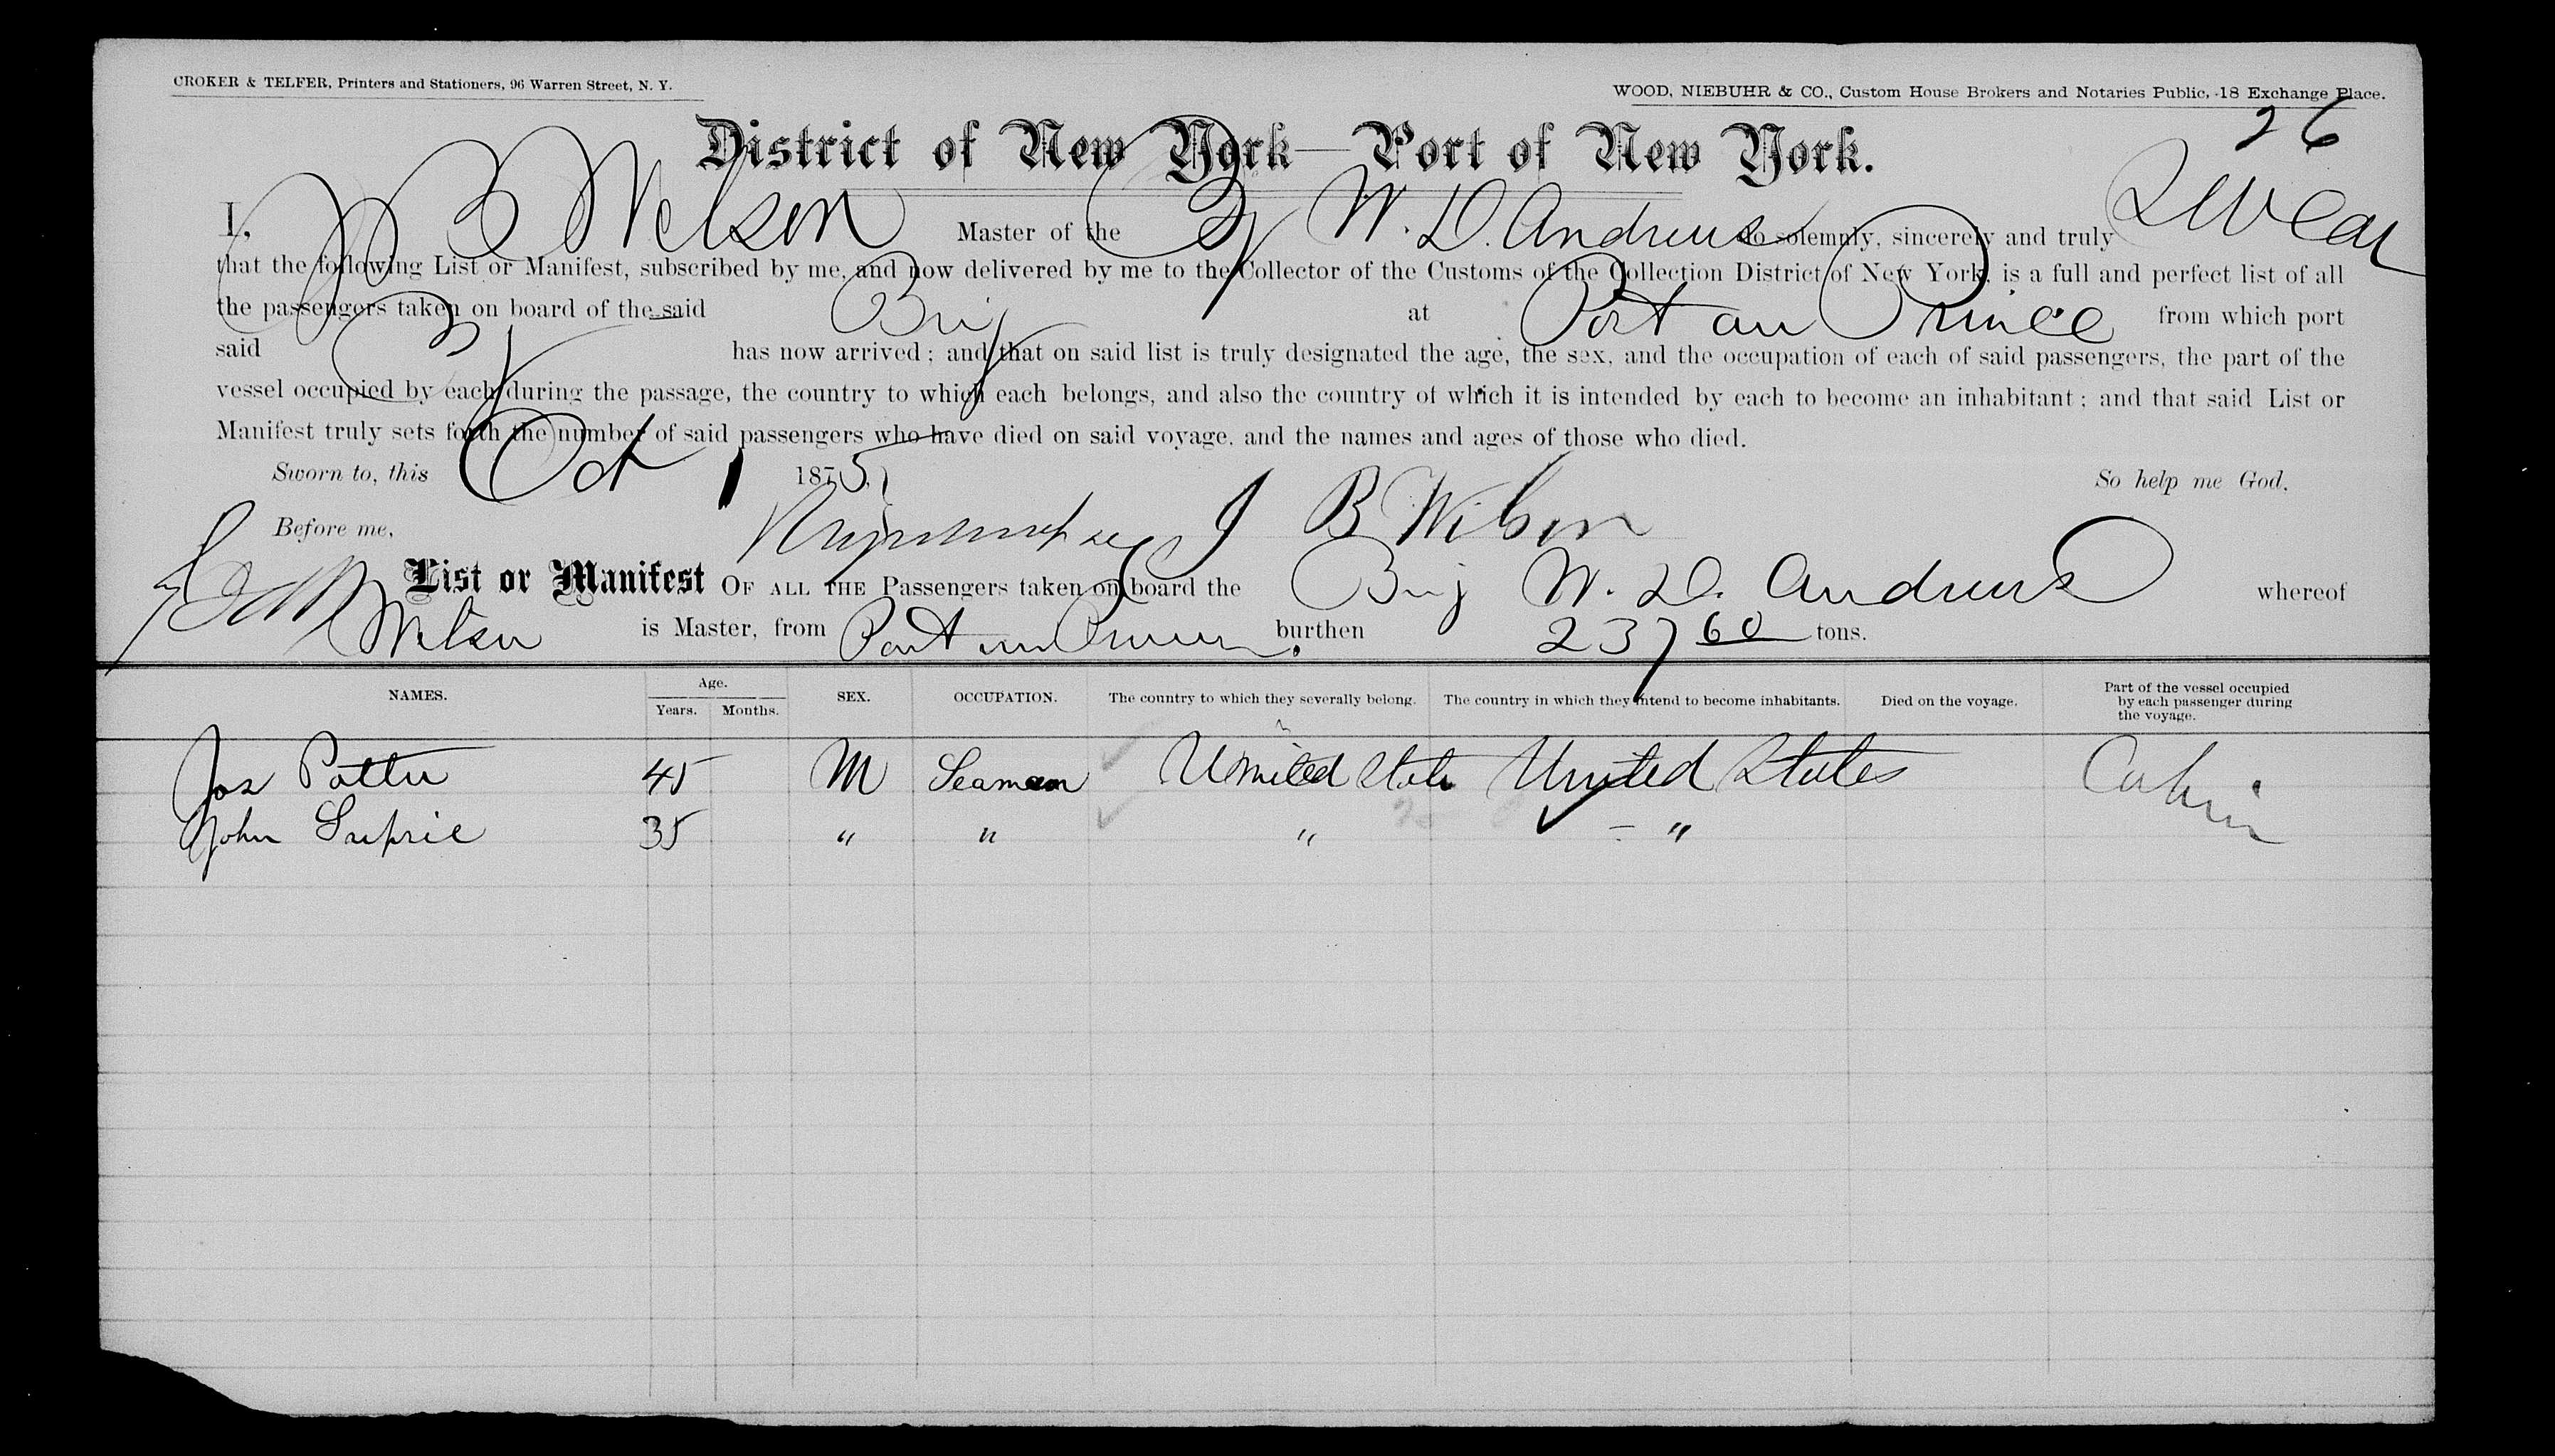 CROKER & TELFER, Printers and Stationers, 96 Warren Street, N. Y.
WOOD, NIEBUHR & CO., Custom House Brokers and Notaries Public, 18 Exchange Place.
26
District of New York—Port of New York.
I, J B Wilson Master of the Brig W. D. Andrews do solemnly, sincerely and truly Swear
that the following List or Manifest, subscribed by me, and now delivered by me to the Collector of the Customs of the Collection District of New York, is a full and perfect list of all
the passengers taken on board of the said Brig at Port au Prince from which port
said Brig has now arrived; and that on said list is truly designated the age, the sex, and the occupation of each of said passengers, the part of the
vessel occupied by each during the passage, the country to which each belongs, and also the country of which it is intended by each to become an inhabitant; and that said List or
Manifest truly sets forth the number of said passengers who have died on said voyage. and the names and ages of those who died.
Sworn to, this Oct 1 1875, So help me God.
Before me, J B Wilson
List or Manifest OF ALL THE Passengers taken on board the Brig W. D. Andrews whereof
Wilson is Master, from Port au Prince burthen 237 60 tons.
NAMES. Age. Years. Months. SEX. OCCUPATION. The country to which they severally belong. The country in which they intend to become inhabitants. Died on the voyage. Part of the vessel occupied by each passenger during the voyage.
Jos Potter 45 M Seaman United States United States Cabin
John 35 " " " "